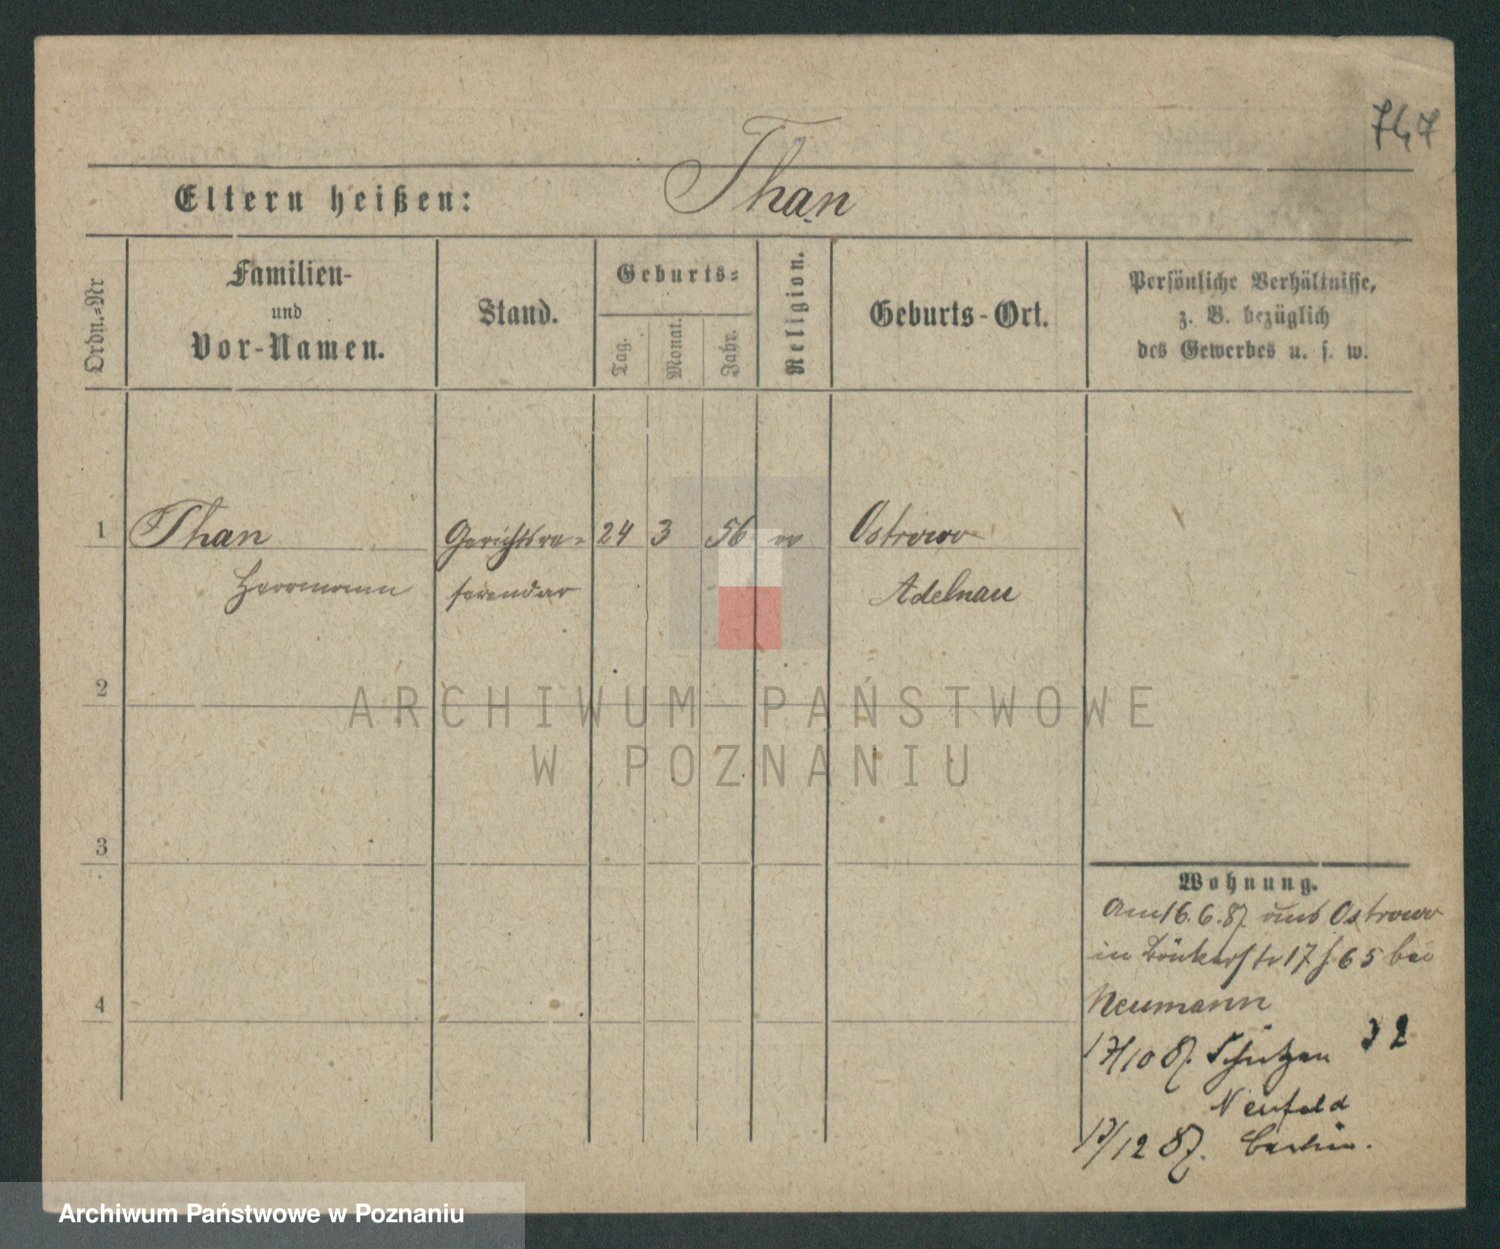 747
Eltern heißen: Than
Ordn.-Nr
Familien-
und
Vor-Namen.
Stand.
Geburts-
Tag.
Monat.
Jahr.
Religion.
Geburts-Ort.
Persönliche Verhältnisse,
z. B. bezüglich
des Gewerbes u. s. w.
1 Than Gerichtsre- 24 3 56 Ostrowo
Herrmann ferendar Adelnau
2
ARCHIWUM PAŃSTWOWE
W POZNANIU
3
4
Wohnung.
Am 16.6.87 aus Ostrowo
in 17 65 bei
Neumann
17/10 87. Schützen 32
Neufeld
12 87. Berlin.
Archiwum Państwowe w Poznaniu